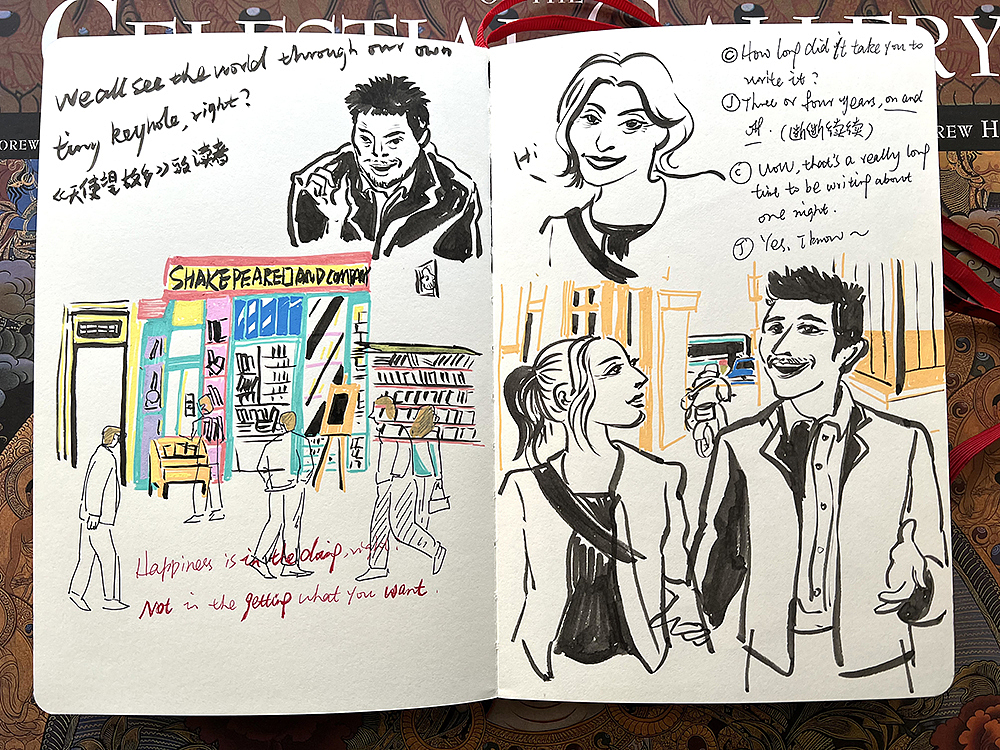 OF THE
CELESTIAL GALLERY
We all see the world through our own
tiny keyhole, right?
《天使望故乡》致读者
SHAKEPEARE AND COMPANY
Happiness is in the doing, right.
Not in the getting what you want.
Hi
© How long did it take you to
write it?
Ⓙ Three or four years, on and
off. (断断续续)
Ⓒ Wow, that's a really long
time to be writing about
one night.
Ⓙ Yes, I know~
REW H